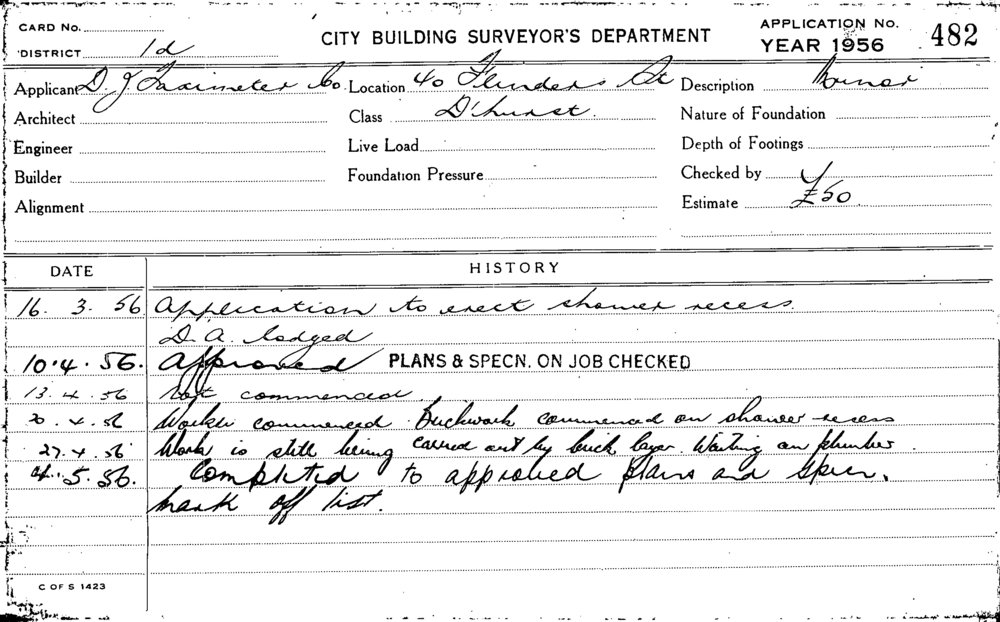 CARD No.
DISTRICT 1d
CITY BUILDING SURVEYOR'S DEPARTMENT
APPLICATION No. 482
YEAR 1956
Applicant D. J. Taximeter Co. Location 40 Flinders St Description Minor
Architect Class D'hurst. Nature of Foundation
Engineer Live Load Depth of Footings
Builder Foundation Pressure Checked by
Alignment Estimate £50
DATE HISTORY
16. 3. 56 Application to erect shower recess.
D.A. lodged
10.4.56. Approved PLANS & SPECN. ON JOB CHECKED
13.4.56 Not commenced.
20.4.56 Works commenced. Brickwork commenced on shower recess
27.4.56 Work is still being carried out by brick layer. Waiting on plumber.
5.56. Completed to approved plans and specn.
mark off list.
C OF S 1423